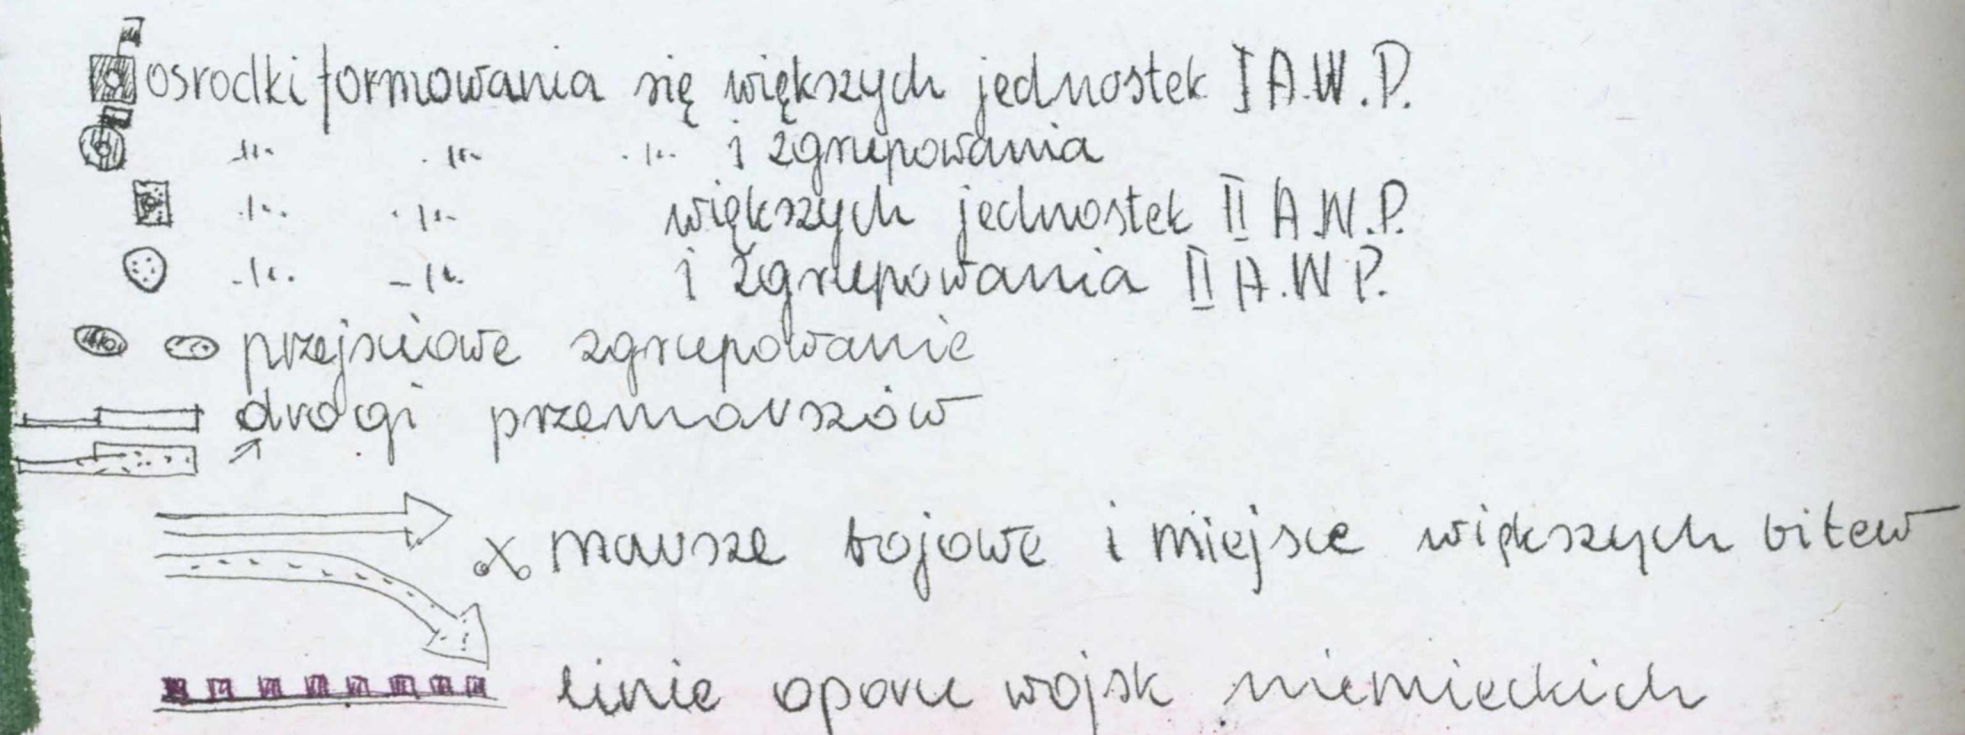 osrodki formowania się większych jednostek I A.W.P.
-"- -"- -"- i zgrupowania
-"- -"- większych jednostek II A.W.P.
-"- -"- i zgrupowania II A.W.P.
przejściowe zgrupowanie
drogi przemarszów
marsze bojowe i miejsce większych bitew
linie oporu wojsk niemieckich